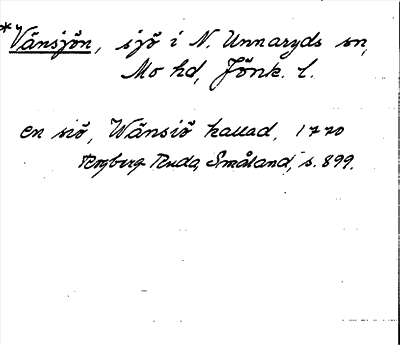 *Vänsjön, sjö i N. Unnaryds sn,
Mo hd, Jönk. l.
en siö, Wänsiö kallad, 1770
Rogberg-Ruda, Småland, s. 899.